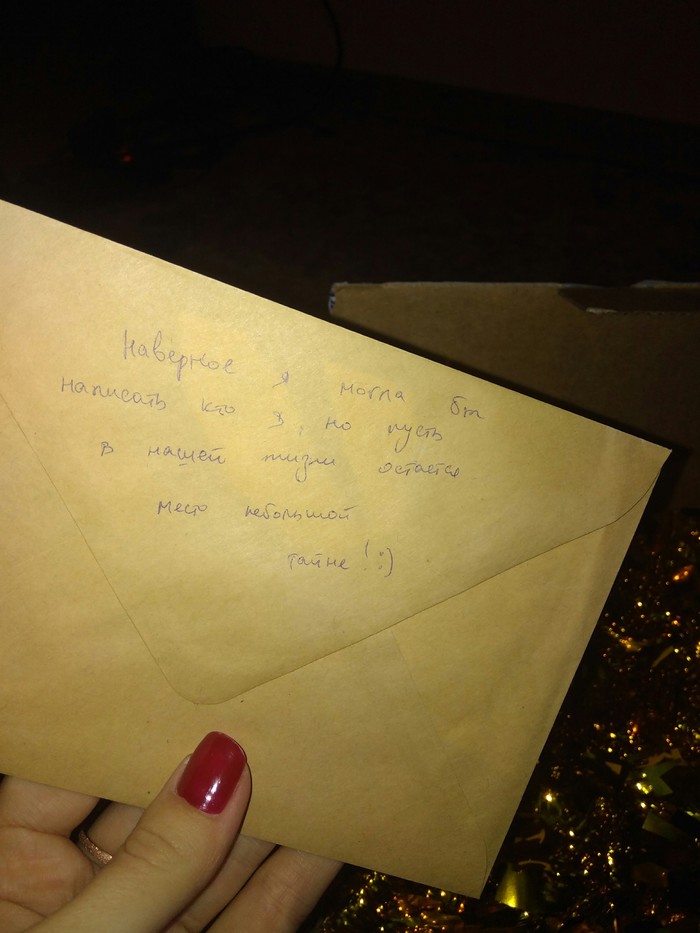 Наверное я могла бы
написать кто я, но пусть
в нашей жизни остается
место небольшой
тайне! :)